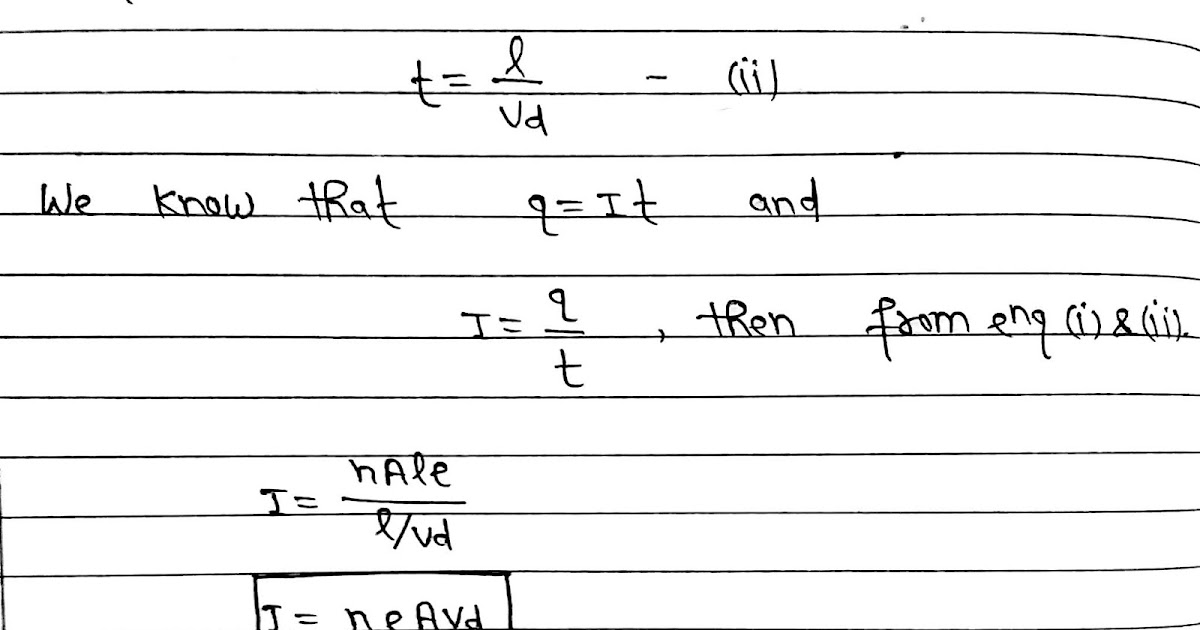 t = l/Vd - (ii)
We know that q = It and
I = q/t , then from enq (i) & (ii).
I = nAle / l/vd
I = neAVd